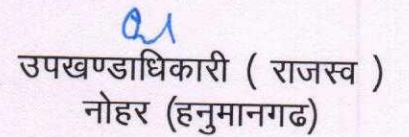 उपखण्डाधिकारी ( राजस्व )
नोहर (हनुमानगढ)